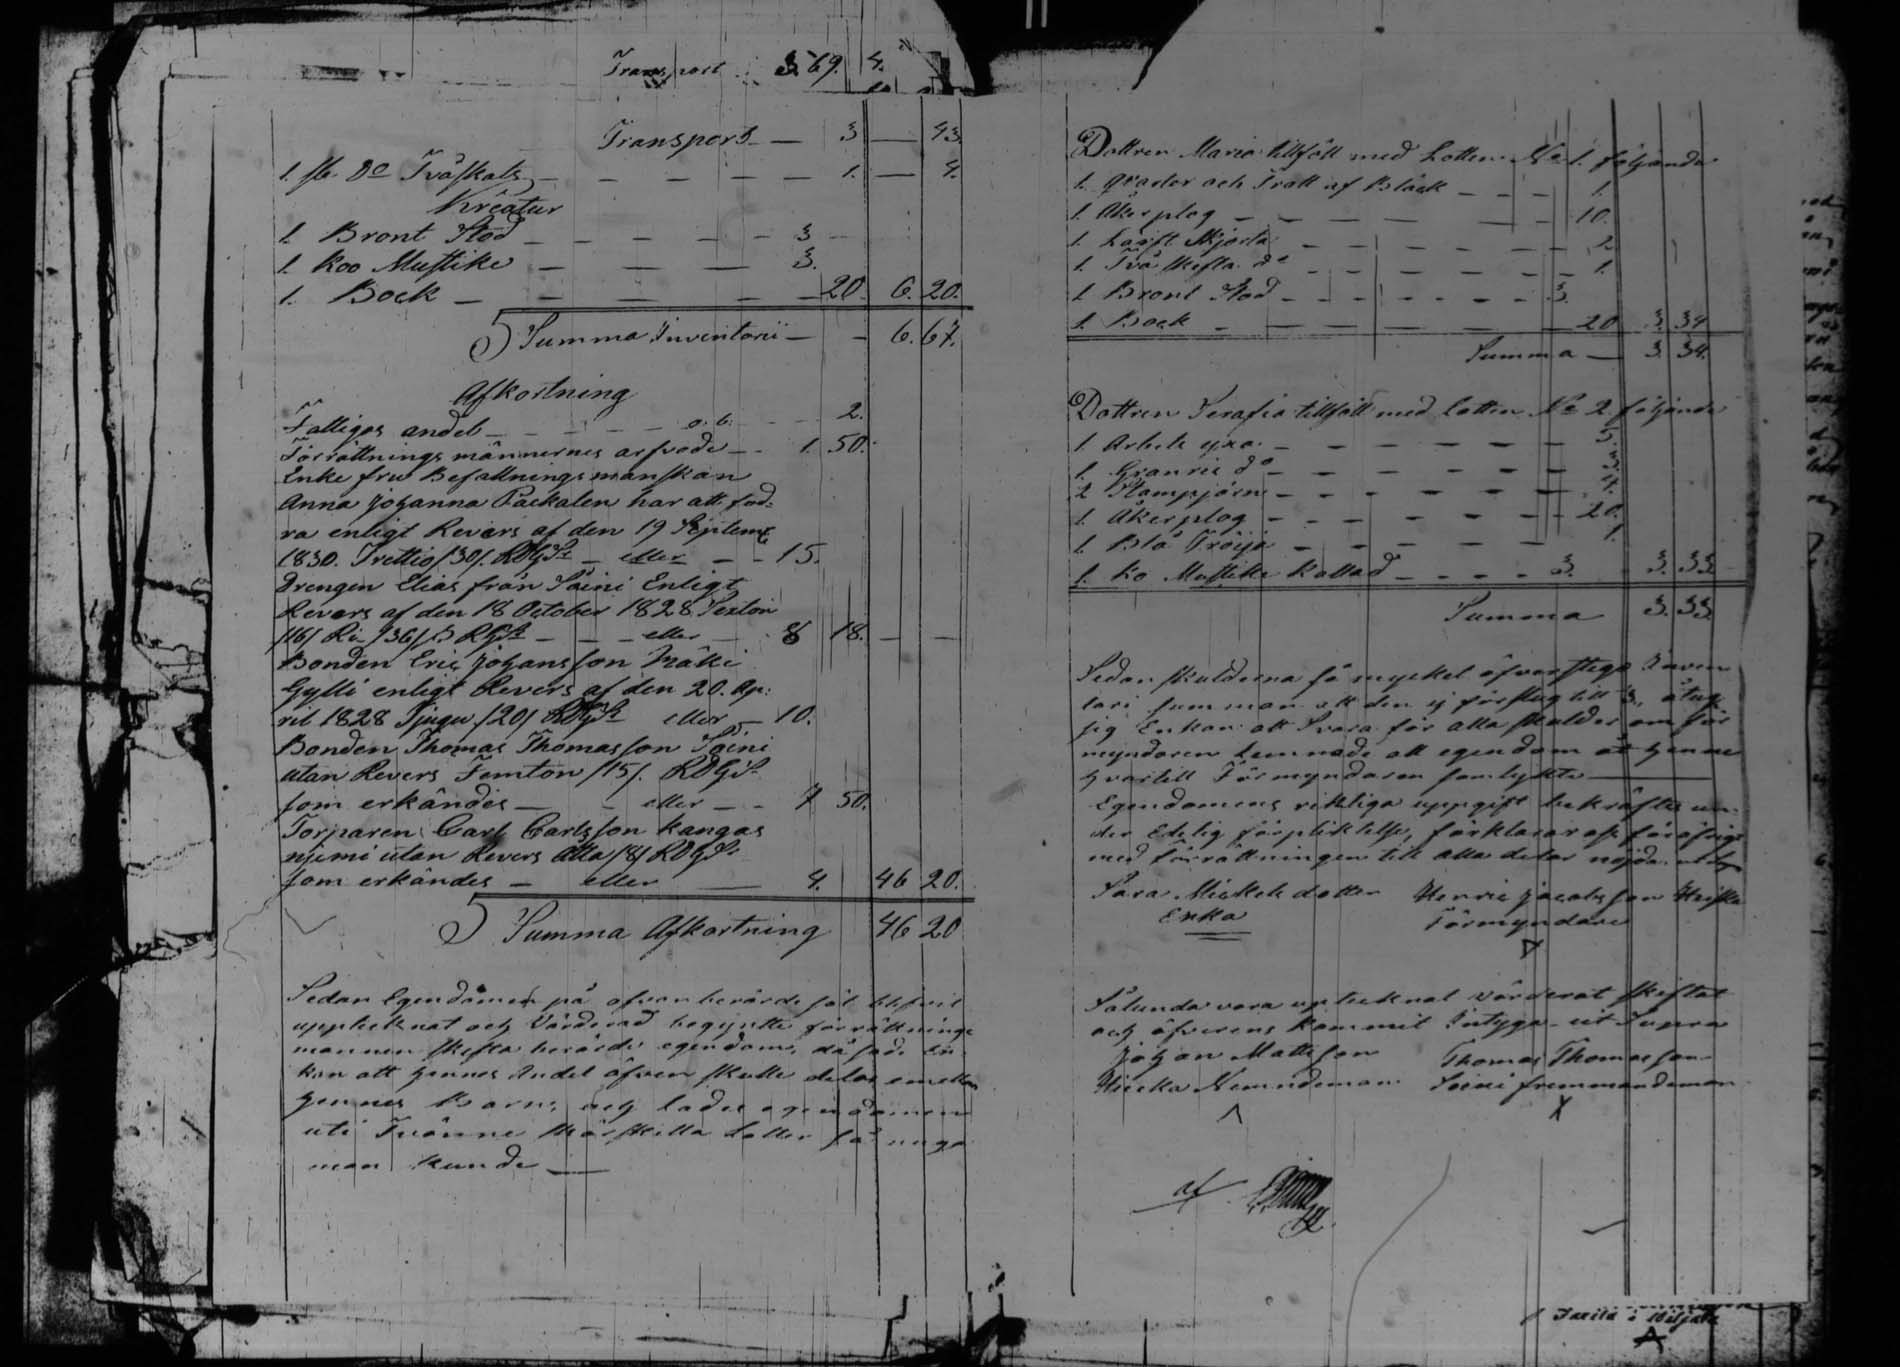 Transport 369. 4.
Transport — 3 — 43.
1. st. Do Tvåskals — — — — — 1. — 4.
Kreatur
1. Bront Stod — — — — — 3 —
1. Koo Mustike — — — 3.
1. Bock — — — — 20. 6. 20.
Summa Inventarii — — 6. 67.
Afkortning
Fattiges andel — — — — o. b. — — 2.
Förrättnings männernes arfvode — 1. 50.
Enke fru Befallningsmanskan
Anna Johanna Packalen har att fod-
ra enligt Revers af den 19 Septemb
1830. Trettio /30/. RDGSt — eller — — 15.
Drengen Elias från Saini Enligt
Revers af den 18 October 1828 Sexton
/16/ Rd /36/ s RGSt — — — eller — 8 18. — —
Bonden Eric Johansson Mäki
Gylli enligt Revers af den 20. Ap:
ril 1828 Tjugu /20/ RDGSt eller — 10.
Bonden Thomas Thomasson Saini
utan Revers Femton /15/. RDGSt
som erkändes — — eller — — 7 50.
Torparen Carl Carlsson Kangas
njemi utan Revers Åtta /8/ RDGSt
som erkändes — eller — 4. 46 20.
Summa Afkortning 46 20
Sedan Egendomen på ofvanberörde sät blifvit
upptecknat och Värderad begynte förrättnings
mannen skifta berörde egendom, då sade En
kan att hennes Andel äfven skulle delas emellan
hennes Barn, och lades egendomen
uti Tvänne särskilta lotter så noga
man kunde —
Dottren Maria tillföll med Lotten No 1. följande
1. qvarter och Tratt af Bläck — — — 1.
1. Åkerplog — — — — — 10.
1. Lärft Skjorta — — — — — 2.
1. Två skefta do — — — — — 1.
1 Bront Stod — — — — — — 3.
1. Bock — — — — — — 20 3. 34
Summa — 3. 34.
Dottren Serafia tillföll med Lotten No 2 följande
1. Arbets yxa — — — — — — 5.
1. Granris do — — — — — — 3.
2 Stampjärn — — — — — 4.
1. Åkerplog — — — — — — 20.
1. Blå Tröija — — — — — 1.
1. Ko Mustike kallad — — — — 3. 3. 33
Summa 3. 33.
Sedan skulderna så mycket öfverstiga Inven
tari summan att den ej förslog till 3, åtog
sig Enkan att Svara för alla skulder om för
myndaren lemnade all egendom åt henne
hvartill Förmyndaren samtykte —
Egendomens riktiga uppgift bekräftes un-
der Edelig förpliktelse, förklarar oss för öfrigt
med förrättningen till alla delar nöjda
Sara Mickels dotter Henric Jacobsson Heiska
Enka Förmyndare
Sålunda vara uptecknat värderat skiftat
och öfverens kommit Intyga ut Supra
Johan Mattsson Thomas Thomasson
Hiecka Nemndeman Saini fremmandeman
af